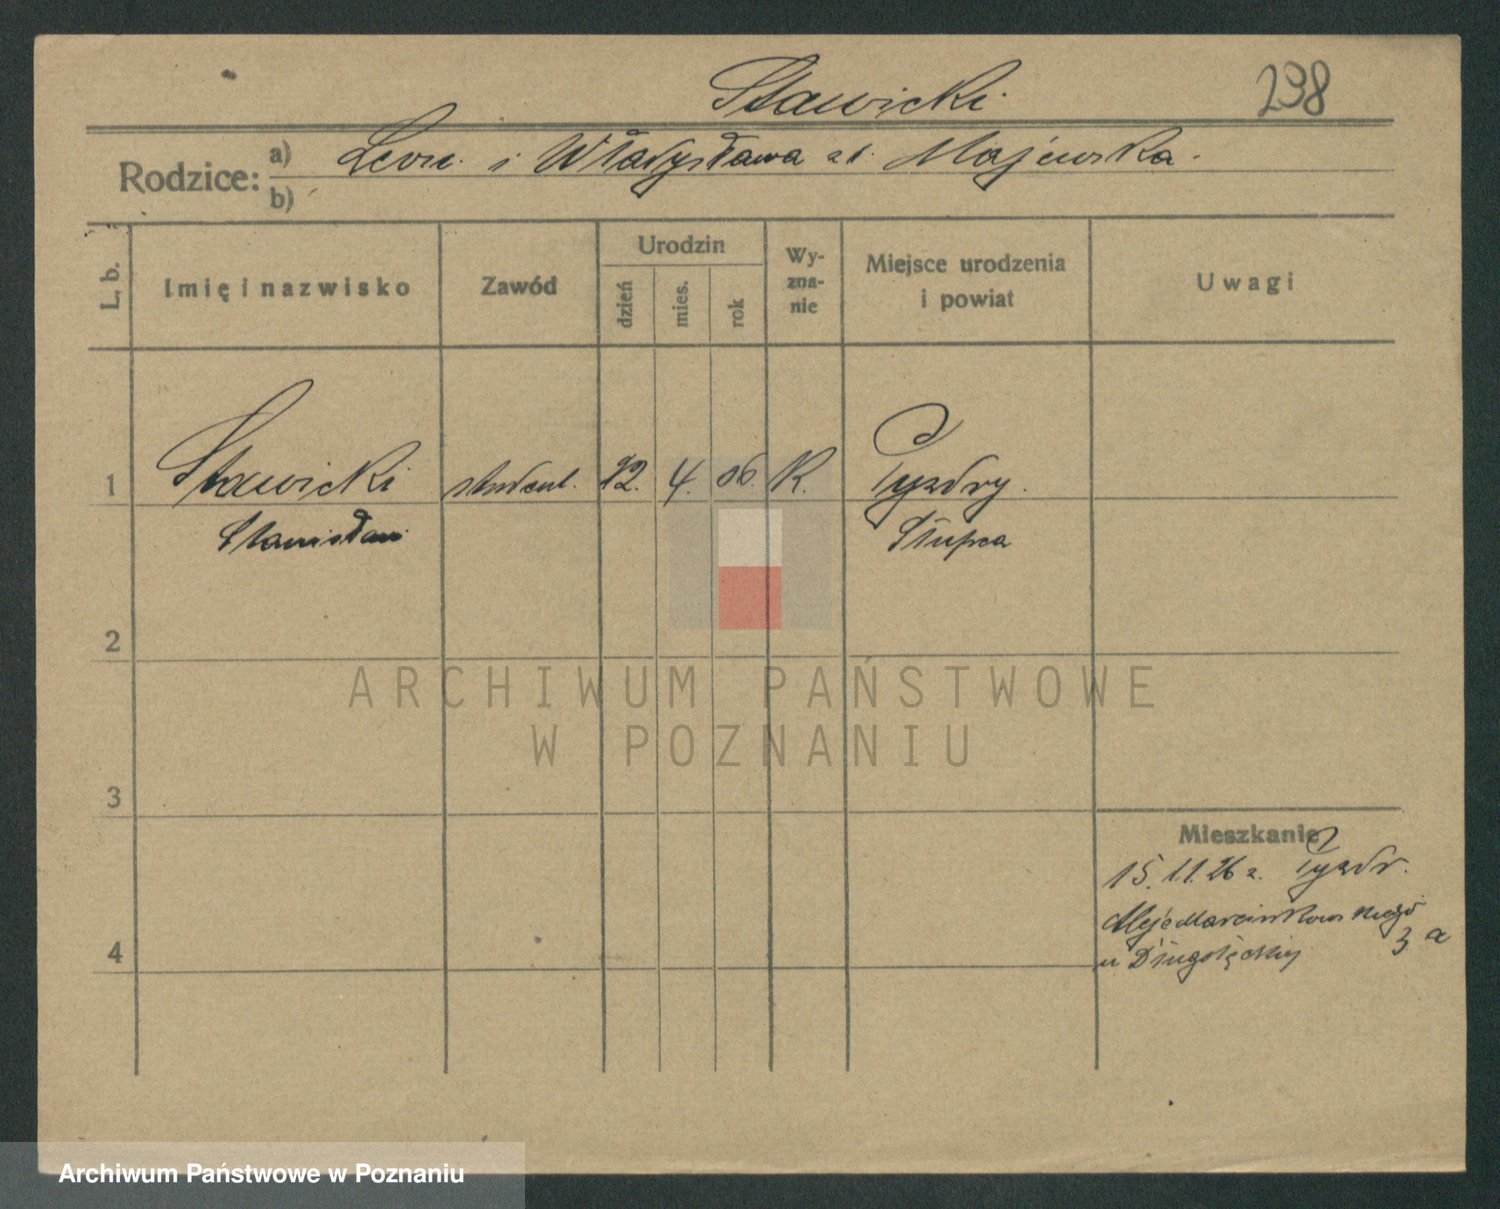 Stawicki. 238
Rodzice: a) Leon. i Władysława zd. Majewska.
b)
L. b. Imię i nazwisko Zawód Urodzin dzień mies. rok Wy-zna-nie Miejsce urodzenia i powiat Uwagi
1 Stawicki student. 22. 4. 06. K. Pyzdry.
Stanisław Słupca
2
ARCHIWUM PAŃSTWOWE
W POZNANIU
3
Mieszkanie
15. 11. 26 z. Pyzdr.
Aleje Marcinkowskiego
3 a
4 u Długołęckiej
Archiwum Państwowe w Poznaniu